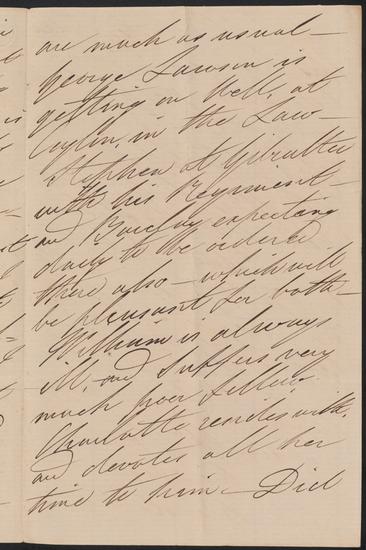 are much as usual —
George Lawson is
getting on well, at
Ceylon, in the Law —
Stephen at Gibralter
with his Regiment —
and Barclay expecting
daily to be ordered
there also — which will
be pleasant for both —
William is always
ill, and suffers very
much poor fellow.
Charlotte resides with,
and devotes all her
time to him — Did